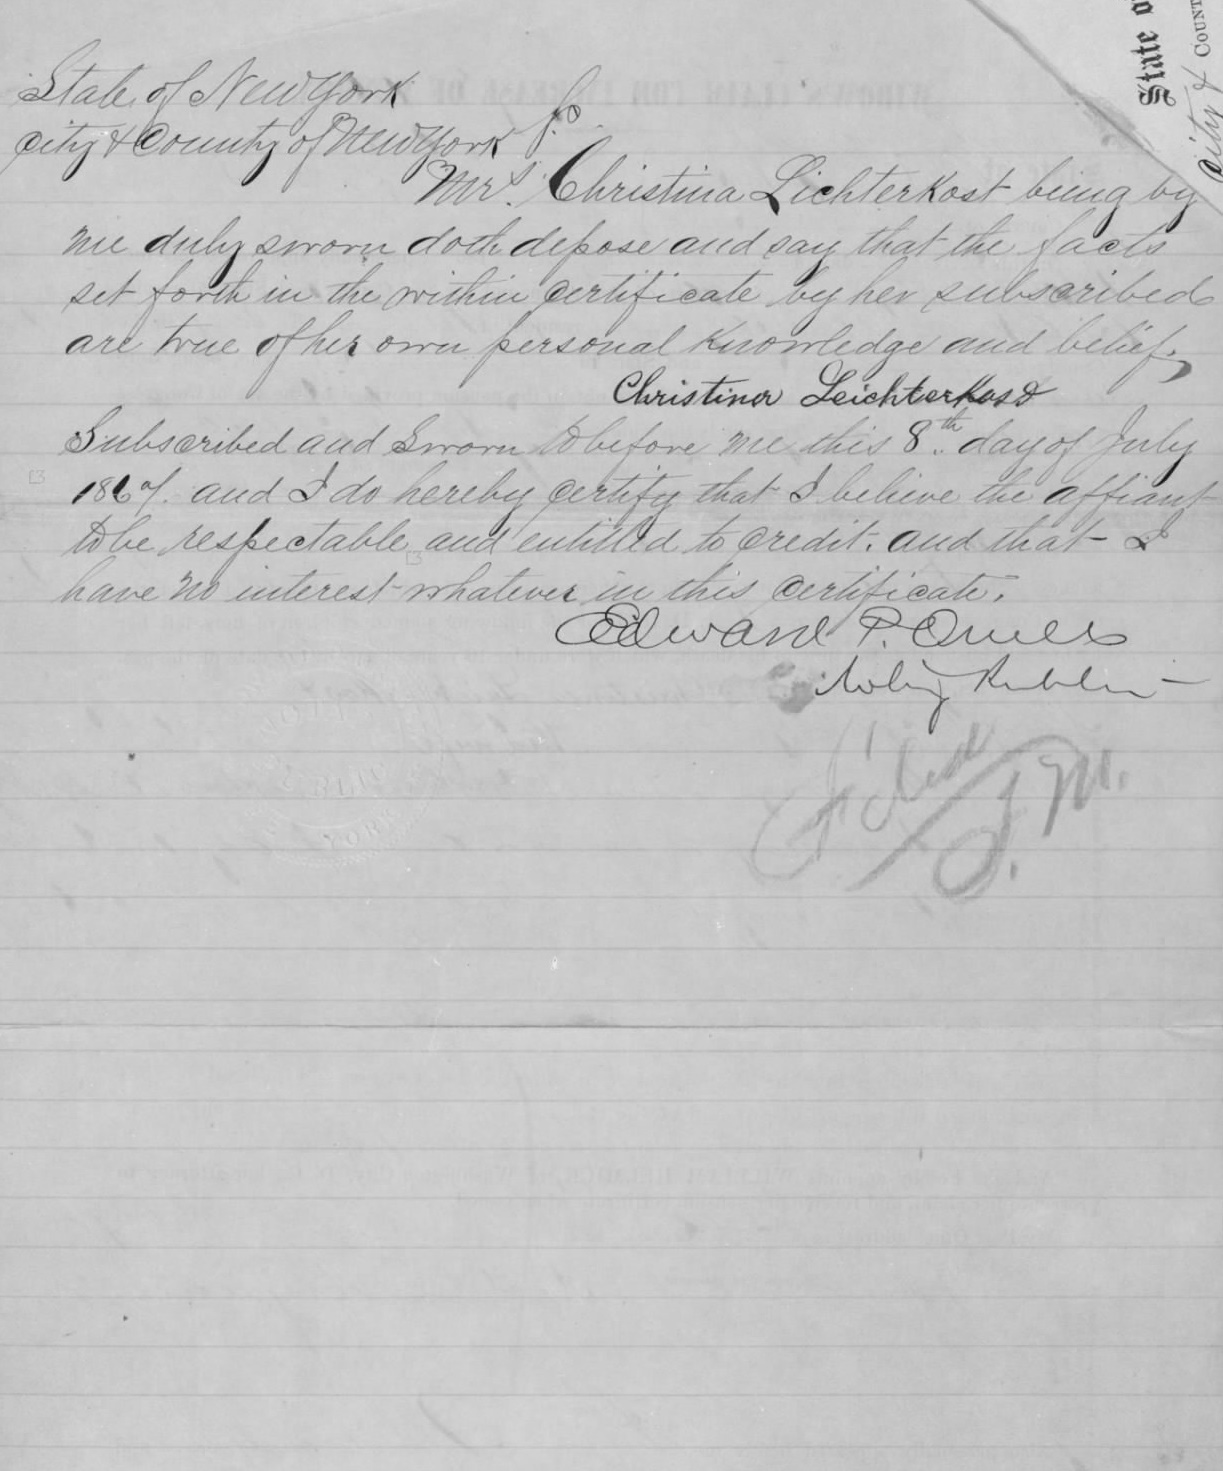 State of New York
City & County of New York
Mrs. Christina Lichterkost being by
me duly sworn doth depose and say that the facts
set forth in the within certificate by her subscribed
are true of her own personal knowledge and belief.
Christina Leichterkost
Subscribed and Sworn to before me this 8th day of July
1867. and I do hereby certify that I believe the affiant
to be respectable and entitled to credit. and that I
have no interest whatever in this certificate.
Edward P.
Filed
J. M.
State
City &
COUNT
YORK